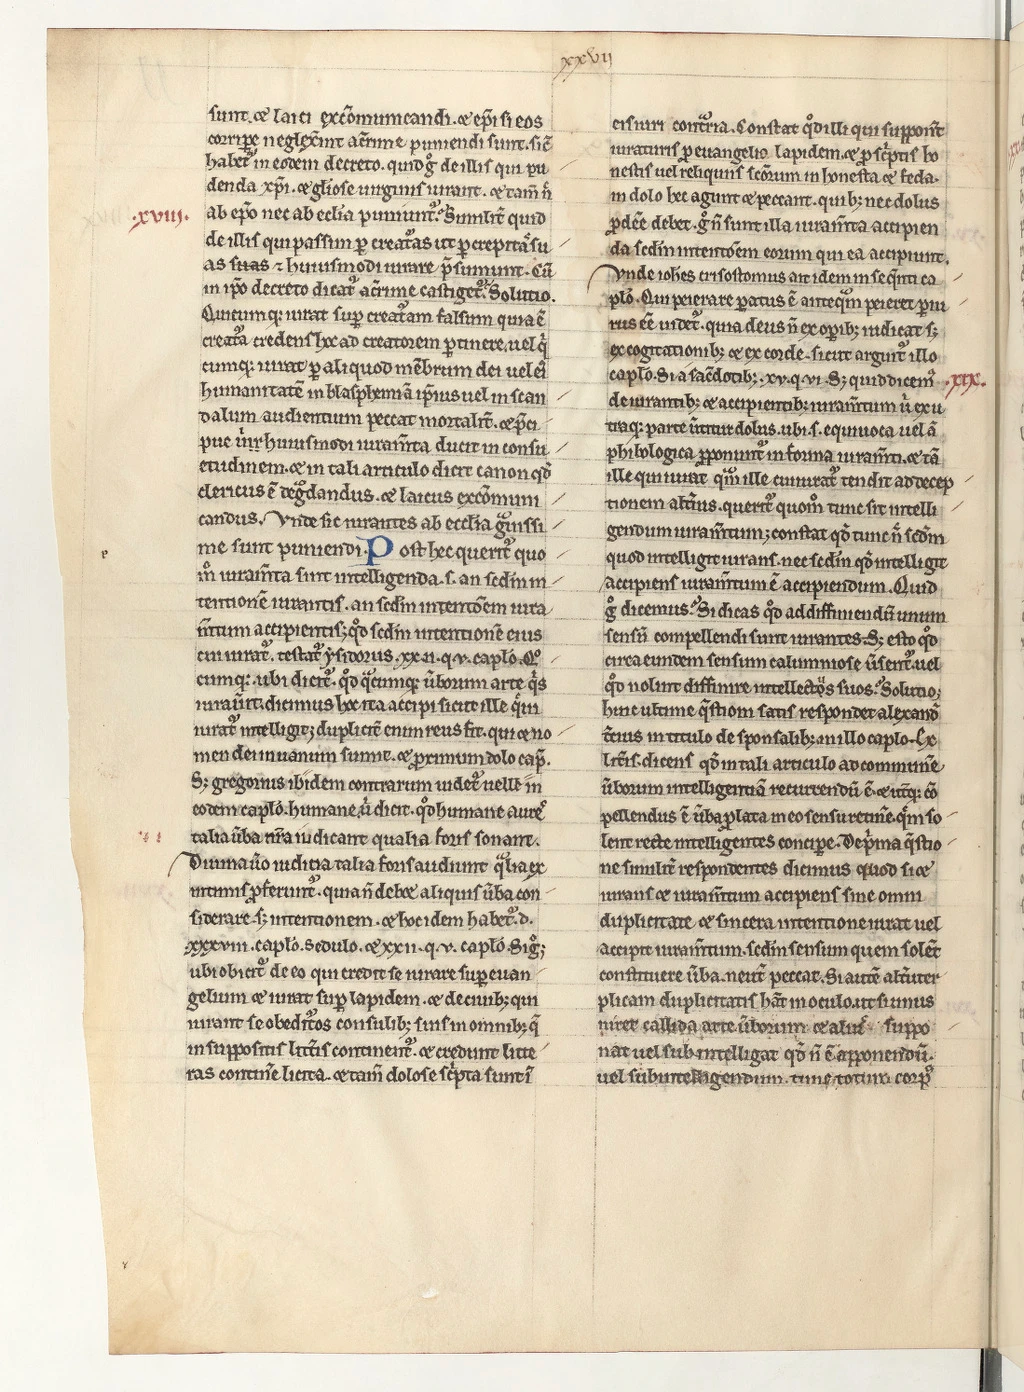 xxvii
sunt. ⁊ laici excõmunicandi. ⁊ ep̃i si eos
corripe neglex̃int ac̃rime puniendi sunt. sic̃
habet᷑ in eodem decreto. quid g̊ de illis qui pu
denda xp̃i. ⁊ gl̃iose uirginis iurant. ⁊ tam̃ ñ
.xviii.
ab ep̃o nec ab eccl̃ia puniunt᷑. Similit̃ quid
de illis qui passim p creat᷑as ut p crepita su
as suas ⁊ huiusmodi iurare p̃sumunt. Cũ
in ip̃o decreto dicat᷑ ac̃rime castiget᷑. Solutio.
Quicumq; iurat sup creat᷑am falsum quia ẽ
creat᷑a credens hoc ad creatorem ptinere, uel q̇
cumq; iurat p aliquod mẽbrum dei uel ei
humanitatẽ in blasphemiã ip̃ius uel in scan
dalum audientium peccat mortalit̃. ⁊ p̃ci
pue huiusmodi iuram̃ta ducit in consu
etudinem. ⁊ in tali articulo dicit canon qd̃
clericus ẽ deg̃dandus. ⁊ laicus excõmuni
candus. Vnde sic iurantes ab ecclĩa g̃uissi
me sunt puniendi. Post hec querit᷑ quo
m̊ iuram̃ta sint intelligenda. s. an scd̃m in
tentionẽ iurantis. an scd̃m intentõem iura
m̃tum accipientis; qd̃ scd̃m intentionẽ eius
cui iurat᷑. testat᷑ ysidorus. xx.ii. q. v. capl̃o. Q̊
cumq;. ubi dicit᷑. qd̃ q̃cumq; ũborum arte q̃s
iurau̇it; dicimus hoc ita accipi sicut ille q̇ui
iurat᷑ intelligit; duplicit̃ enim reus fit. qui ⁊ no
men dei in uanum sumit. ⁊ proximum dolo cap̃.
S; gregorius ibidem contrarium uidet᷑ uelle in
eodem capl̃o. humane, ů dicit. qd̃ humane aure᷑
talia ũba nr̃a iudicant qualia foris sonant.
Diuina ůo iudicia talia foris audiunt q̃lia ex
intimis pferunt᷑. quia ñ debet aliquis ũba con
siderare. s; intentionem. ⁊ hoc idem habet᷑. d.
xxxviii. capl̃o. Sedulo. ⁊ xxii. q. v. capl̃o. Sig̊;
ubi obicit᷑ de eo qui credit se iurare sup euan
gelium ⁊ iurat sup lapidem. ⁊ de ciuib; qui
iurant se obedit᷑os consulib; suis in omnib; q̃
in suppositis litt̃is continent᷑. ⁊ credunt litte
ras contine licita. ⁊ tam̃ dolose sc̃pta sunt i
cis iuri cont᷑ria. Constat qd̃ illi qui supponũt
iuraturis p euuangelio lapidem. ⁊ p sc̃ptis ho
nestis uel reliquiis sc̃orum inhonesta ⁊ feda.
in dolo hec agunt ⁊ peccant. quib; nec dolus
pdẽe debet. g̊ ñ sunt illa iuram̃ta accipien
da scd̃m intentõem eorum qui ea accipiunt.
Vnde ioh̃es crisostomus ait idem in seq̃nti ca
pl̃o. Qui peierare patus ẽ anteqm̃ peieret piu
rus eẽ uidet᷑. quia deus ñ ex opib; iudicat s;
ex cogitationib; ⁊ ex corde. sicut arguit᷑ illo
capl̃o. Si a sac̃dotib;. xv. q. vi. S; quid dicem᷑
.xix.
de iurantib; ⁊ accipientib; iuram̃tum ů ex u
traq; parte ũtitur dolus. ubi. s. equiuoca uel ã
phibologica pponunt᷑ in forma iuram̃ti. ⁊ tã
ille qui iurat qm̃ ille cui iurat᷑ tendit ad decep
tionem alt̃ius. querit᷑ quom̊ tunc sit intelli
gendum iuram̃tum; constat qd̃ tunc ñ scd̃m
quod intelligit iurans. nec scd̃m qd̃ intelligit
accipiens iuram̃tum ẽ accipiendum. Quid
g̊ dicemus. Si dicas qd̃ ad diffiniendũ unum
sensũ compellendi sunt iurantes. S; esto qd̃
circa eundem sensum calumniose ũsent᷑. uel
qd̃ nolint diffinire intellectus suos. Solutio;
huic ultime q̃stioni satis respondet alexand̃
t̃cius in titulo de sponsalib; in illo capl̃o. Ex
litt̃is. dicens qd̃ in tali articulo ad communẽ
ũborum intelligentiã recurrendũ ẽ. ⁊ ut̃q; cõ
pellendus ẽ ũba plata in eo sensu retinẽ. q̃m so
lent recte intelligentes concipe. De p̃ma q̃stio
ne similit̃ respondentes dicimus quod si ⁊
iurans ⁊ iuram̃tum accipiens sine omni
duplicitate ⁊ sincera intentione iurat uel
accipit iuram̃tum. scd̃m sensum quem solet
constituere ũba. neut᷑ peccat. Si autẽ alt̃uter
plicam duplicitatis hãt in oculo. ut si unus
iuret callida arte ũborum ⁊ suppo
nat uel sub intelligat qd̃ ñ ẽ apponendũ.
uel subintelligendum. tunc corp᷑